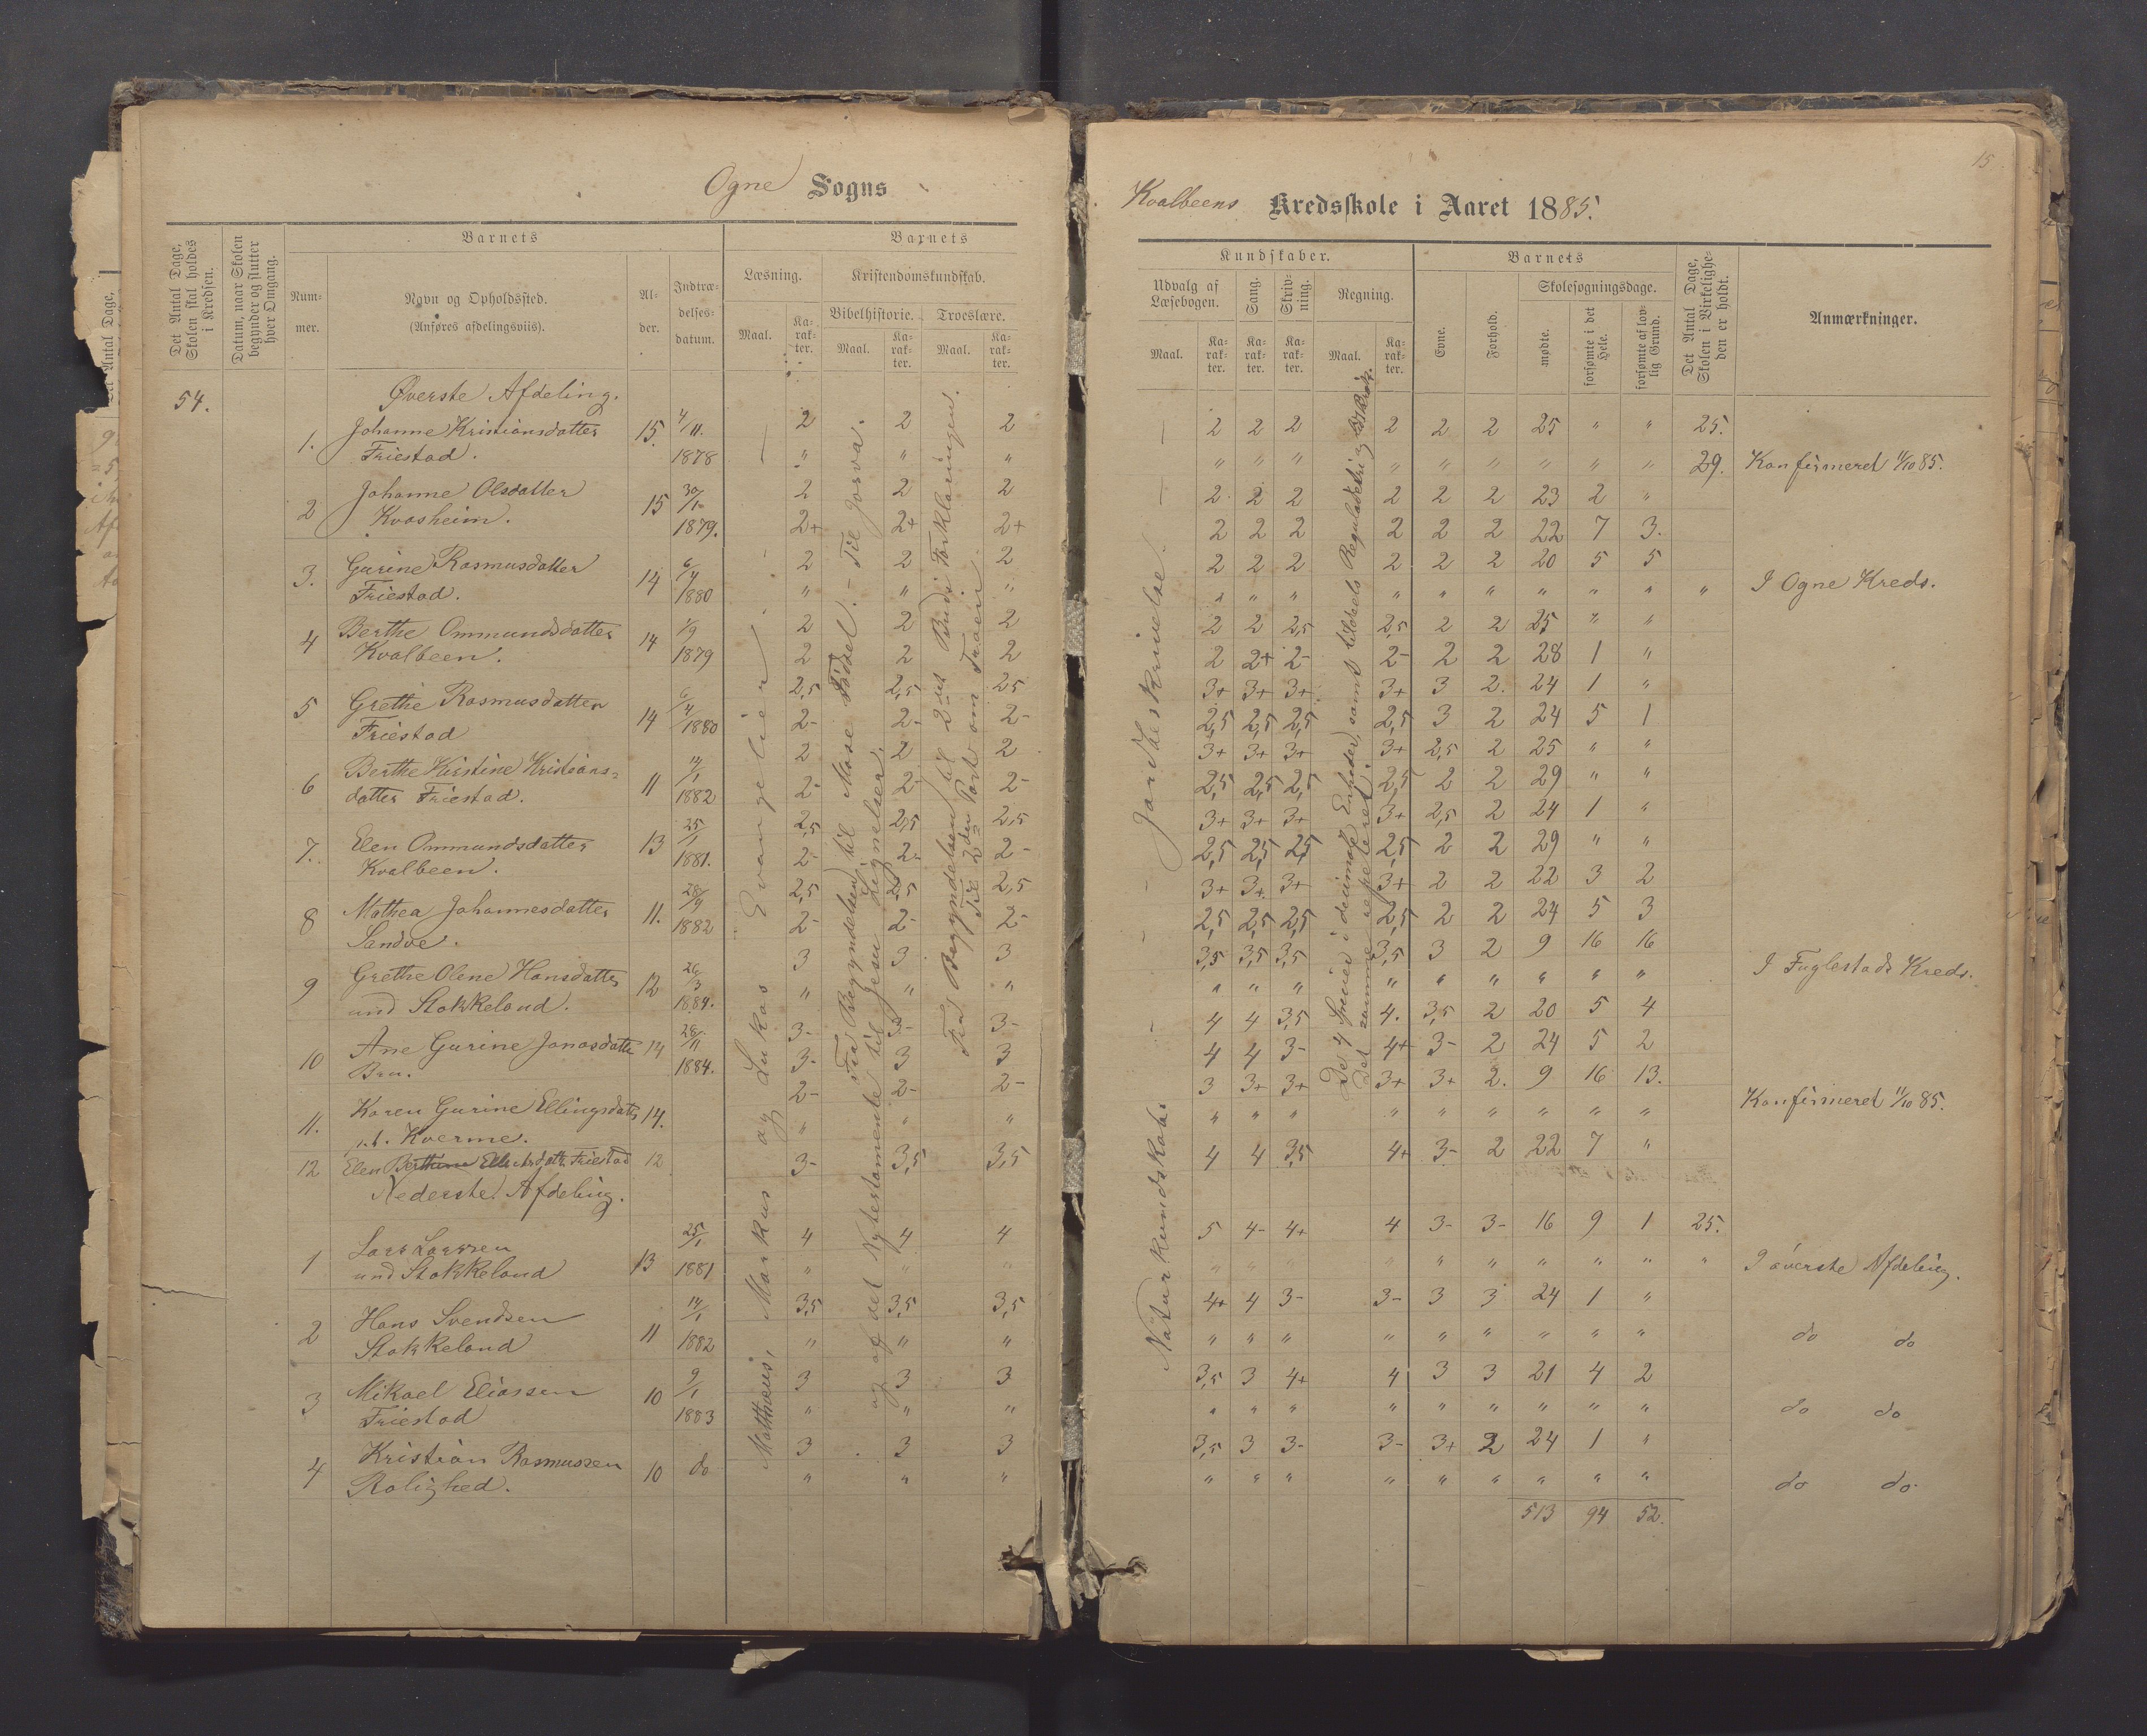 Ogne Sogns
Det Antal Dage, Skolen skal holdes i Kredsen.
Datum, naar Skolen begynder og slutter hver Omgang.
Barnets
Barnets
Nummer.
Navn og Opholdssted.
(Anføres afdelingsviis).
Alder.
Indtrædelsesdatum.
Læsning.
Kristendomskundskab.
Bibelhistorie.
Troeslære.
Maal.
Karakter.
Maal.
Karakter.
Maal.
Karakter.
54.
Øverste Afdeling.
1. Johanne Kristiansdatter 15. 4/11. 2 2 2
Friestad. 1878 " " "
2 Johanne Olsdatter 15 30/10 2 2 2
Kvasheim. 1879. 2+ 2+ 2+
3. Gurine Rasmusdatter 14 6/4 2 2 2
Friestad. 1880 " " "
4 Berthe Ommundsdatter 14 1/9 2 2 2
Kvalbeen. 1879 2 2 2
5 Grethe Rasmusdatter 14 6/4 2,5 2,5 2,5
Friestad 1880 2- 2- 2-
6 Berthe Kirstine Kristians= 11 14/1 2 2 2
datter Friestad. 1882 2- 2- 2-
7. Elen Ommundsdatter 13 25/1 2,5 2,5 2,5
Kvalbeen. 1881. 2- 2- 2-
8 Mathea Johannesdatter 11. 28/9 2,5 2,5 2,5
Sandve. 1882 2- 2- 2-
9 Grethe Olene Hansdatter 12 26/3 3 3 3
und Stokkeland. 1884. " " "
10 Ane Gurine Jonasdatter 14 26/11 3- 3- 3-
Bru. 1884. 3- 3 3
11. Karen Gurine Ellingsdatter 14. 2- 2- 2-
p.t. Kverme. " " "
12 Elen Friestad 12 3- 3,5 3,5
Nederste Afdeling.
1 Lars Larssen 13 25/1 4 4 4
und Stokkeland 1881 " " "
2 Hans Svendsen 11 14/1 3,5 3,5 3,5
Stokkeland 1882 " " "
3 Mikael Eliassen 10 9/1 3 3 3
Friestad 1883 " " "
4 Kristian Rasmussen 10 do 3 3 3
Rolighed. " " "
Mattheus, Markus og Lukas Evangelier.
Fra Begyndelsen til Mose Fødsel. – Til Josva.
og af det Nytestamente til Jesu Lignelser.
Fra Begyndelsen til 2det Bud i Forklaringen.
Til 2den Part om Troen.
15
Kvalbeens Kredsskole i Aaret 1885.
Kundskaber.
Barnets
Udvalg af Læsebogen.
Sang.
Skrivning.
Regning.
Evne.
Forhold.
Skolesøgningsdage.
Det Antal Dage, Skolen i Virkeligheden er holdt.
Anmærkninger.
Maal.
Karakter.
Karakter.
Karakter.
Maal.
Karakter.
mødte.
forsømte i det Hele.
forsømte af lovlig Grund.
2 2 2 2 2 2 25 " " 25.
" " " " " " " " " 29. Konfirmeret 11/10 85.
2 2 2 2 2 2 23 2 "
2 2 2 2 2 2 22 7 3.
2 2 2 2 2 2 20 5 5
" " " " " " " " " " I Ogne Kreds.
2 2 2,5 2,5 2 2 25 " "
2 2+ 2- 2- 2 2 28 1 "
3+ 3+ 3+ 3+ 3 2. 24 1 "
2,5 2,5 2,5 2,5 3 2 24 5 1
3+ 3+ 3+ 3+ 2,5 2 25 " "
2,5 2,5 2,5 2,5 2 2 29 " "
3+ 3+ 3+ 3+ 2,5 2 24 1 "
2,5 2,5 2,5 2,5 2 2 29 " "
3+ 3+ 3+ 3+ 2 2 22 3 2
2,5 2,5 2,5 2,5 2 2 24 5 3
3,5 3,5 3,5 3,5 3 2 9 16 16
" " " " " " " " " I Fuglestads Kreds.
4 4 3,5 4. 3,5 2 20 5 4
4 4 3- 4+ 3- 2 24 5 2
3 3+ 3+ 3+ 3+ 2. 9 16 13.
" " " " " " " " " Konfirmeret 11/10 85.
4 4 3,5 4+ 3- 2 22 7 "
5 4- 4+ 4 3- 3- 16 9 1 25.
" " " " " " " " " " I øverste Afdeling.
4+ 4 3- 3- 3 3 24 1 "
" " " " " " " " " do do
3,5 3 4+ 4 3 3 21 4 2
" " " " " " " " " do do
3,5 3 3- 3- 3+ 2 24 1 "
" " " " " " " " " do do
513 94 52.
Naturkundskab. – – – Jordbeskrivelse.
De 4 Specier i decimale Enheder, samt tildeels Reguladetri og
Det samme repeteret.